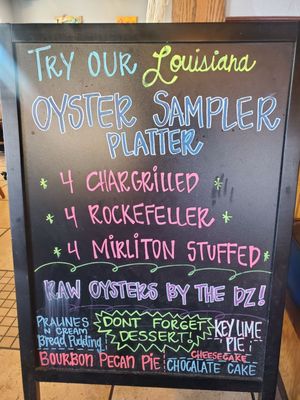 TRY OUR Louisiana
OYSTER SAMPLER
PLATTER
* 4 CHARGRILLED *
* 4 ROCKEFELLER *
* 4 MIRLITON STUFFED *
RAW OYSTERS BY THE DZ!
PRALINES
N CREAM
Bread Pudding
DONT FORGET
DESSERT!
KEY LIME
PIE
BOURBON PECAN PIE
CHEESECAKE
CHOCALATE CAKE